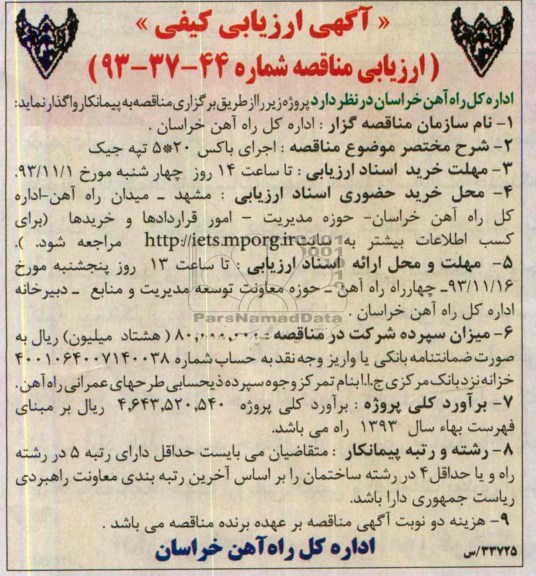 « آگهی ارزیابی کیفی »
( ارزیابی مناقصه شماره ۴۴-۳۷-۹۳ )
اداره کل راه آهن خراسان در نظر دارد پروژه زیر را از طریق برگزاری مناقصه به پیمانکار واگذار نماید:
۱- نام سازمان مناقصه گزار : اداره کل راه آهن خراسان .
۲- شرح مختصر موضوع مناقصه : اجرای باکس ۲۰*۵ تپه جیک
۳- مهلت خرید اسناد ارزیابی : تا ساعت ۱۴ روز چهار شنبه مورخ ۹۳/۱۱/۱.
۴- محل خرید حضوری اسناد ارزیابی : مشهد ـ میدان راه آهن-اداره
کل راه آهن خراسان- حوزه مدیریت – امور قراردادها و خریدها (برای
کسب اطلاعات بیشتر به سایت http://iets.mporg.ir مراجعه شود. ).
۵- مهلت و محل ارائه اسناد ارزیابی : تا ساعت ۱۳ روز پنجشنبه مورخ
۹۳/۱۱/۱۶ـ چهارراه راه آهن ـ حوزه معاونت توسعه مدیریت و منابع ـ دبیرخانه
اداره کل راه آهن خراسان .
ParsNamadData
۶- میزان سپرده شرکت در مناقصه ۸۰,۰۰۰,۰۰۰ ( هشتاد میلیون) ریال به
صورت ضمانتنامه بانکی یا واریز وجه نقد به حساب شماره ۴۰۰۱۰۶۴۰۰۷۱۴۰۰۳۸
خزانه نزد بانک مرکزی ج.ا.ا بنام تمرکز وجوه سپرده ذیحسابی طرحهای عمرانی راه آهن.
۷- برآورد کلی پروژه : برآورد کلی پروژه ۴,۶۴۳,۵۲۰,۵۴۰ ریال بر مبنای
فهرست بهاء سال ۱۳۹۳ راه می باشد.
۸- رشته و رتبه پیمانکار : متقاضیان می بایست حداقل دارای رتبه ۵ در رشته
راه و یا حداقل۴ در رشته ساختمان را بر اساس آخرین رتبه بندی معاونت راهبردی
ریاست جمهوری دارا باشد.
۹- هزینه دو نوبت آگهی مناقصه بر عهده برنده مناقصه می باشد .
اداره کل راه آهن خراسان
۳۳۷۲۵/س